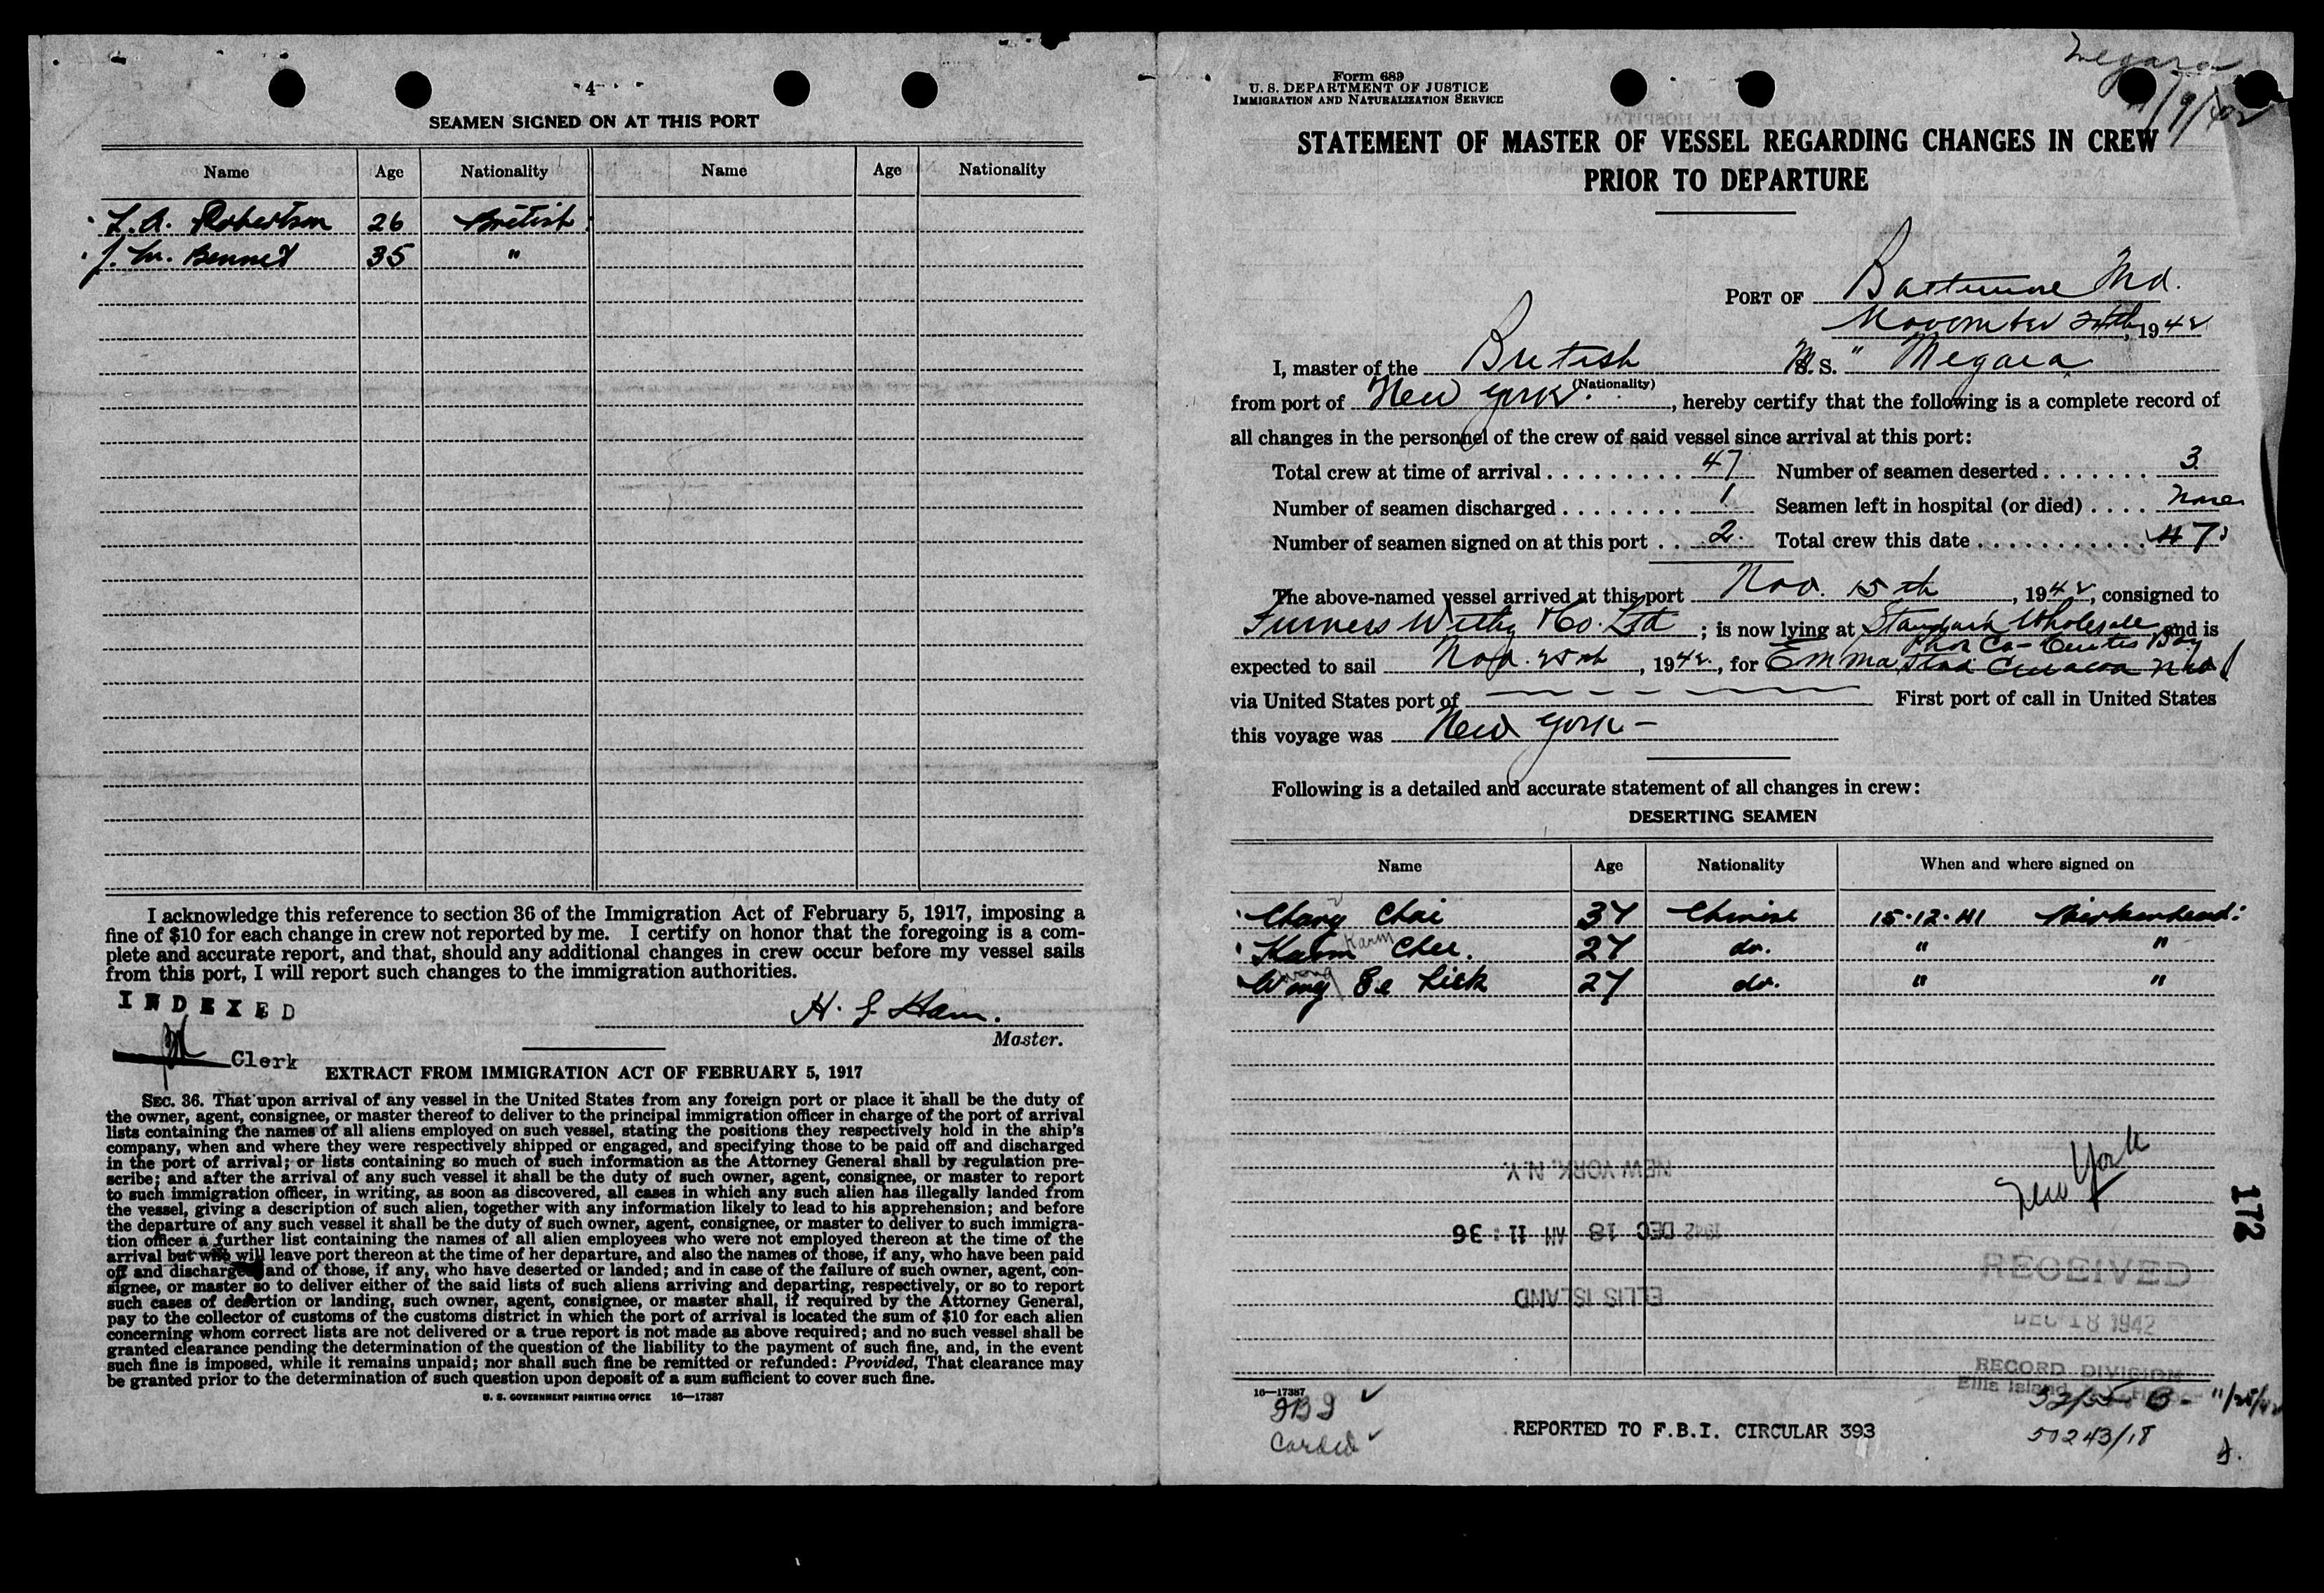 4
SEAMEN SIGNED ON AT THIS PORT
Name Age Nationality Name Age Nationality
26 British
J. M. Bennet 35 "
I acknowledge this reference to section 36 of the Immigration Act of February 5, 1917, imposing a
fine of $10 for each change in crew not reported by me. I certify on honor that the foregoing is a com-
plete and accurate report, and that, should any additional changes in crew occur before my vessel sails
from this port, I will report such changes to the immigration authorities.
INDEXED
Clerk
H. J. Ham.
Master.
EXTRACT FROM IMMIGRATION ACT OF FEBRUARY 5, 1917
SEC. 36. That upon arrival of any vessel in the United States from any foreign port or place it shall be the duty of
the owner, agent, consignee, or master thereof to deliver to the principal immigration officer in charge of the port of arrival
lists containing the names of all aliens employed on such vessel, stating the positions they respectively hold in the ship's
company, when and where they were respectively shipped or engaged, and specifying those to be paid off and discharged
in the port of arrival; or lists containing so much of such information as the Attorney General shall by regulation pre-
scribe; and after the arrival of any such vessel it shall be the duty of such owner, agent, consignee, or master to report
to such immigration officer, in writing, as soon as discovered, all cases in which any such alien has illegally landed from
the vessel, giving a description of such alien, together with any information likely to lead to his apprehension; and before
the departure of any such vessel it shall be the duty of such owner, agent, consignee, or master to deliver to such immigra-
tion officer a further list containing the names of all alien employees who were not employed thereon at the time of the
arrival but who will leave port thereon at the time of her departure, and also the names of those, if any, who have been paid
off and discharged and of those, if any, who have deserted or landed; and in case of the failure of such owner, agent, con-
signee, or master so to deliver either of the said lists of such aliens arriving and departing, respectively, or so to report
such cases of desertion or landing, such owner, agent, consignee, or master shall, if required by the Attorney General,
pay to the collector of customs of the customs district in which the port of arrival is located the sum of $10 for each alien
concerning whom correct lists are not delivered or a true report is not made as above required; and no such vessel shall be
granted clearance pending the determination of the question of the liability to the payment of such fine, and, in the event
such fine is imposed, while it remains unpaid; nor shall such fine be remitted or refunded: Provided, That clearance may
be granted prior to the determination of such question upon deposit of a sum sufficient to cover such fine.
U. S. GOVERNMENT PRINTING OFFICE 16—17387
Form 689
U. S. DEPARTMENT OF JUSTICE
IMMIGRATION AND NATURALIZATION SERVICE
Megara
STATEMENT OF MASTER OF VESSEL REGARDING CHANGES IN CREW
PRIOR TO DEPARTURE
PORT OF Baltimore Md.
November 1942
I, master of the British M.S. "Megara
(Nationality)
from port of New York, hereby certify that the following is a complete record of
all changes in the personnel of the crew of said vessel since arrival at this port:
Total crew at time of arrival 47 Number of seamen deserted 3
Number of seamen discharged 1 Seamen left in hospital (or died) None
Number of seamen signed on at this port 2. Total crew this date 47
The above-named vessel arrived at this port Nov. 15th, 1942, consigned to
Furness Withy & Co. Ltd; is now lying at Standard Wholesale and is
Phos Co- Curtis Bay
expected to sail Nov. 25th, 1942, for
via United States port of First port of call in United States
this voyage was New York —
Following is a detailed and accurate statement of all changes in crew:
DESERTING SEAMEN
Name Age Nationality When and where signed on
Chang Chai 37 Chinese 15.12.41 Birkenhead.
Karm
Karm Chee. 27 do. " "
Wong
Wong Se Lick 27 do. " "
NEW YORK, N.Y.
New York
1942 DEC 18 AM 11:36
172
ELLIS ISLAND
RECEIVED
DEC 18 1942
RECORD DIVISION
Ellis Island
16—17387
11/28/42
Carded
REPORTED TO F.B.I. CIRCULAR 393
50243/18